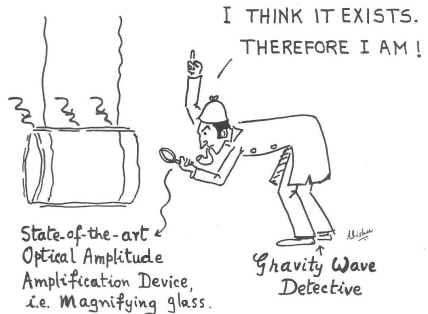 I THINK IT EXISTS.
THEREFORE I AM!
State-of-the-art
Optical Amplitude
Amplification Device,
i.e. Magnifying glass.
Gravity Wave
Detective